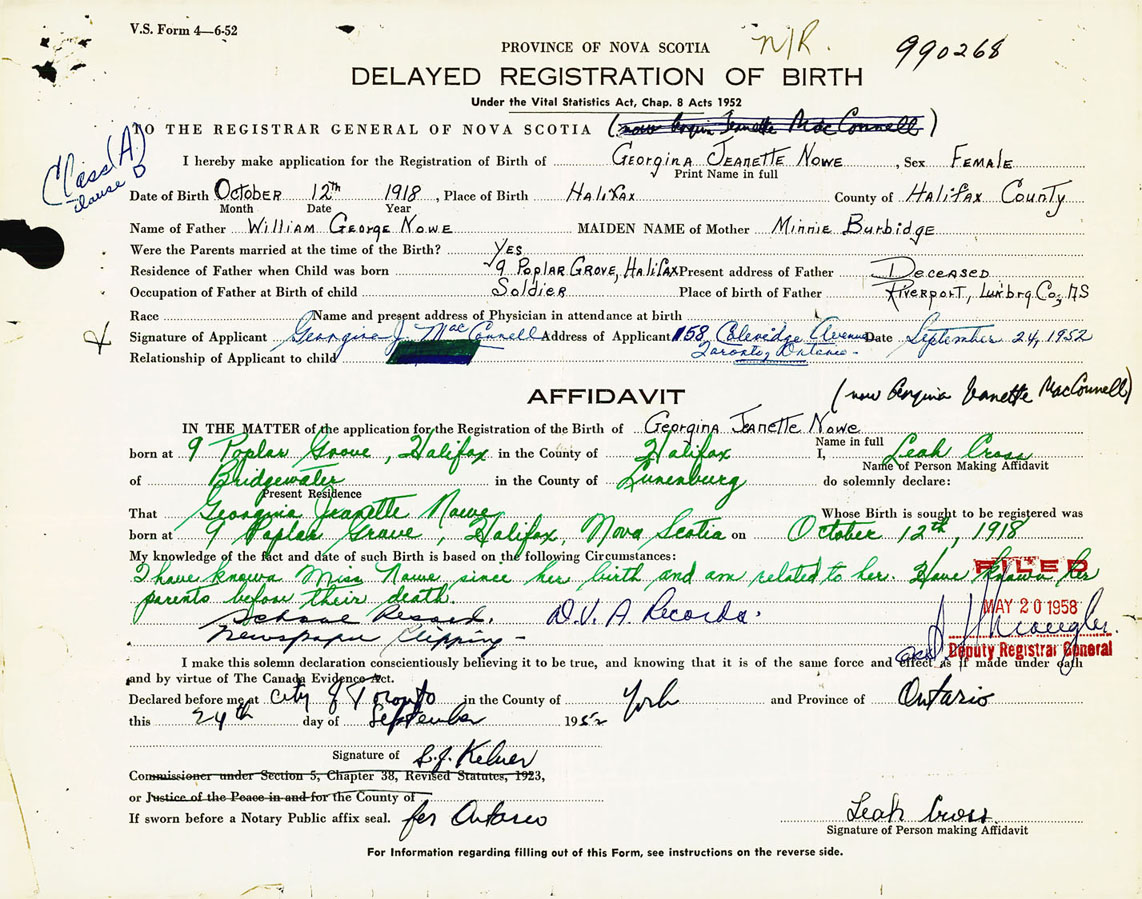 V.S. Form 4—6-52
PROVINCE OF NOVA SCOTIA N/R. 990268
DELAYED REGISTRATION OF BIRTH
Under the Vital Statistics Act, Chap. 8 Acts 1952
TO THE REGISTRAR GENERAL OF NOVA SCOTIA (now Jeanette MacConnell)
Class (A)
clause D
I hereby make application for the Registration of Birth of Georgina Jeanette Nowe, Sex Female
Print Name in full
Date of Birth October 12th 1918, Place of Birth Halifax County of Halifax County
Month Date Year
Name of Father William George Nowe MAIDEN NAME of Mother Minnie Burbidge
Were the Parents married at the time of the Birth? Yes
Residence of Father when Child was born 9 Poplar Grove, Halifax Present address of Father Deceased
Occupation of Father at Birth of child Soldier Place of birth of Father Riverport, Lunbrg. Co, NS
Race Name and present address of Physician in attendance at birth
Signature of Applicant Georgina J. MacConnell Address of Applicant 158 Avenue Date September 24, 1952
Toronto, Ontario -
Relationship of Applicant to child
AFFIDAVIT
(now Georgina Jeanette MacConnell)
IN THE MATTER of the application for the Registration of the Birth of Georgina Jeanette Nowe
Name in full
born at 9 Poplar Grove, Halifax in the County of Halifax I, Leah Cross
Name of Person Making Affidavit
of Bridgewater in the County of Lunenburg do solemnly declare:
Present Residence
That Georgina Jeanette Nowe Whose Birth is sought to be registered was
born at 9 Poplar Grove, Halifax, Nova Scotia on October 12th, 1918
My knowledge of the fact and date of such Birth is based on the following Circumstances:
I have known Miss Nowe since her birth and am related to her. Have known her
parents before their death.
School Record. D.V.A Records.
Newspaper Clipping -
FILED
MAY 20 1958
Deputy Registrar General
I make this solemn declaration conscientiously believing it to be true, and knowing that it is of the same force and effect as if made under oath
and by virtue of The Canada Evidence Act.
Declared before me at City of Toronto in the County of York and Province of Ontario
this 24th day of September 1952
Signature of S.J. Kelner
Commissioner under Section 5, Chapter 38, Revised Statutes, 1923,
or Justice of the Peace in and for the County of
If sworn before a Notary Public affix seal. for Ontario
Leah Cross
Signature of Person making Affidavit
For Information regarding filling out of this Form, see instructions on the reverse side.